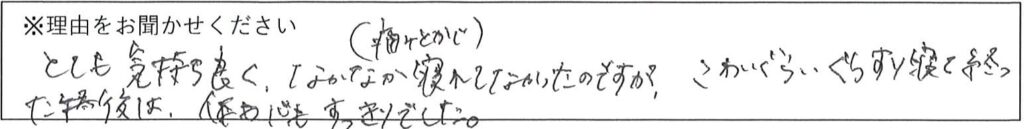 ※理由をお聞かせください
(痛みとかじ)
とても気持ち良く、なかなか寝れてなかったのですが、こわいぐらいぐっすり寝て終っ
た 後は、体も心もすっきりでした。